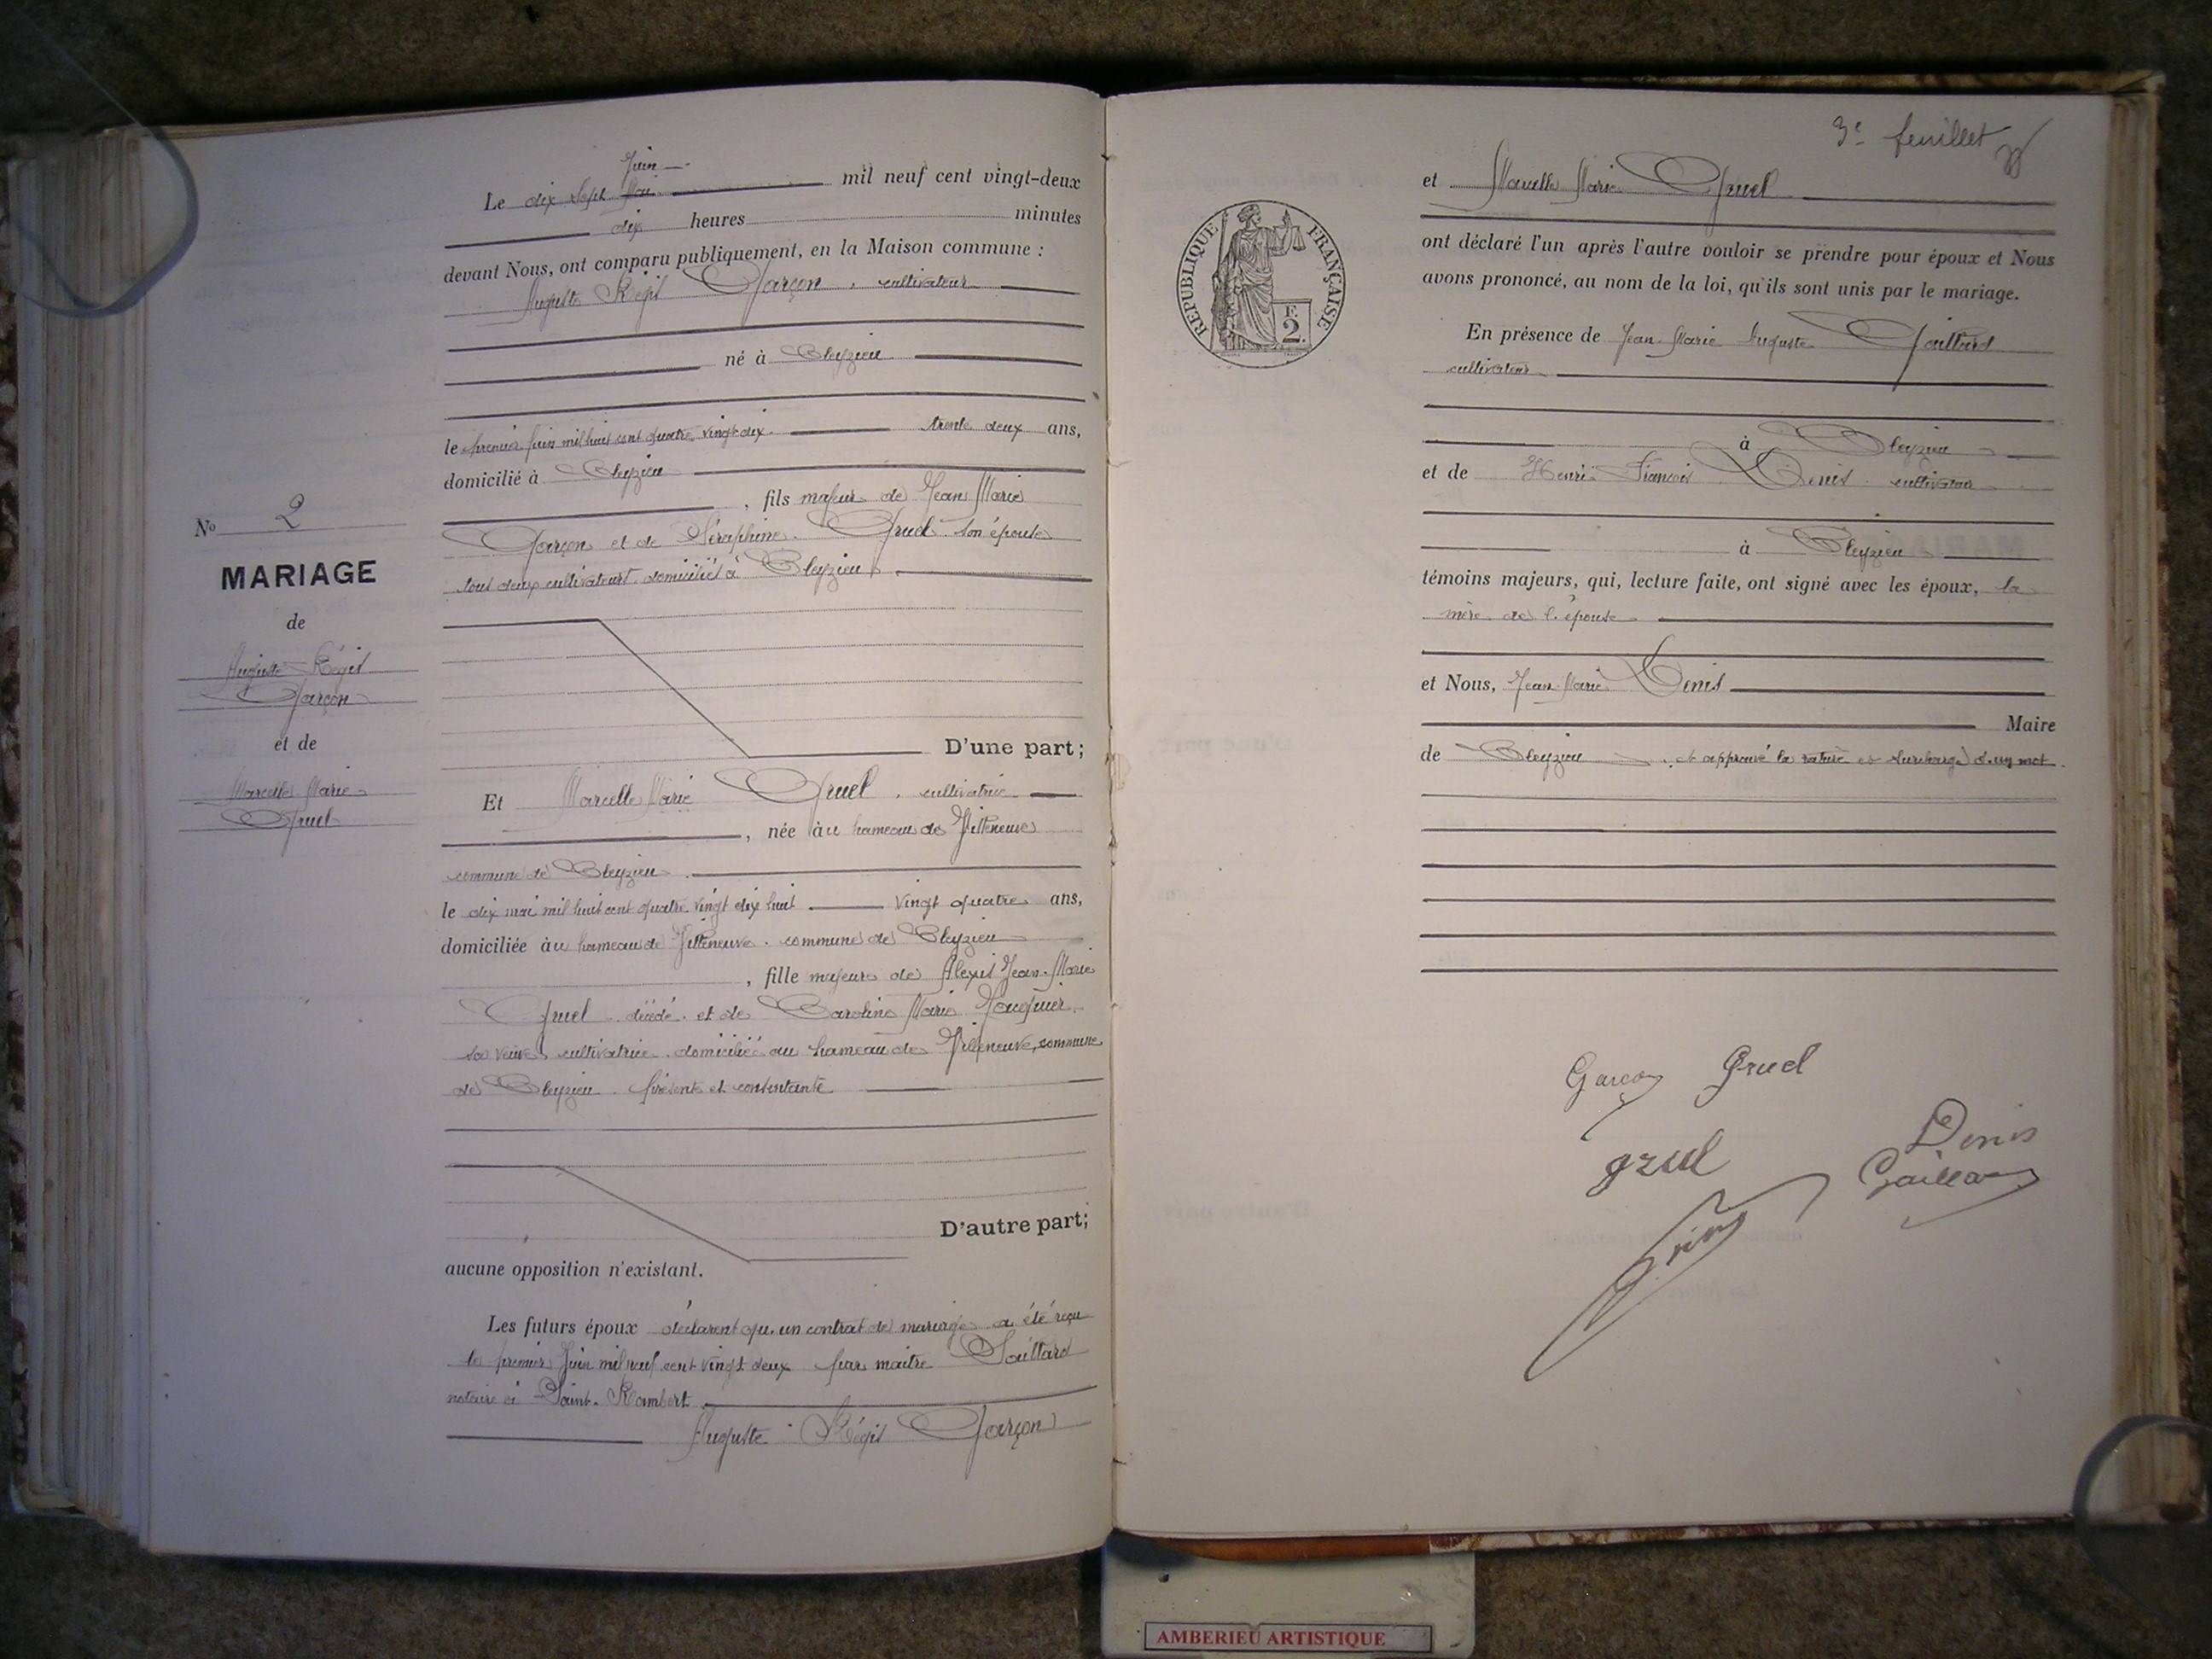 Juin
Le dix Sept Mai mil neuf cent vingt-deux
dix heures minutes
devant Nous, ont comparu publiquement, en la Maison commune :
Auguste Régis Garçon, cultivateur
né à Cleyzieu
le premier juin mil huit cent quatre vingt dix. trente deux ans,
domicilié à Cleyzieu
, fils majeur de Jean Marie
Garçon et de Séraphine Gruel son épouse
tous deux cultivateurs domiciliés à Cleyzieu
D'une part;
Et Marcelle Marie Gruel, cultivatrice
, née au hameau de Villeneuve
commune de Cleyzieu
le dix mai mil huit cent quatre vingt dix huit vingt quatre ans,
domiciliée au hameau de Villeneuve commune de Cleyzieu
, fille majeure de Alexis Jean-Marie
Gruel décédé et de Caroline Marie
sa veuve cultivatrice domiciliée au hameau de Villeneuve, commune
de Cleyzieu. présente et consentante
D'autre part;
aucune opposition n'existant.
Les futurs époux déclarent qu'un contrat de mariage a été reçu
le premier Juin mil neuf cent vingt deux par maître
notaire à Saint-Rambert
Auguste Régis Garçon
No 2
MARIAGE
de
Auguste Régis
Garçon
et de
Marcelle Marie
Gruel
3e feuillet
et Marcelle Marie Gruel
RÉPUBLIQUE FRANÇAISE
F. 2.
ont déclaré l'un après l'autre vouloir se prendre pour époux et Nous
avons prononcé, au nom de la loi, qu'ils sont unis par le mariage.
En présence de Jean-Marie Auguste Gaillard
cultivateur
à Cleyzieu
et de Henri François Denis cultivateur
à Cleyzieu
témoins majeurs, qui, lecture faite, ont signé avec les époux, la
mère de l'épouse
et Nous, Jean-Marie Denis
Maire
de Cleyzieu et approuvé la rature et surcharge d'un mot
Garçon Gruel
gruel
Denis
Gaillard
Denis
AMBERIEU ARTISTIQUE